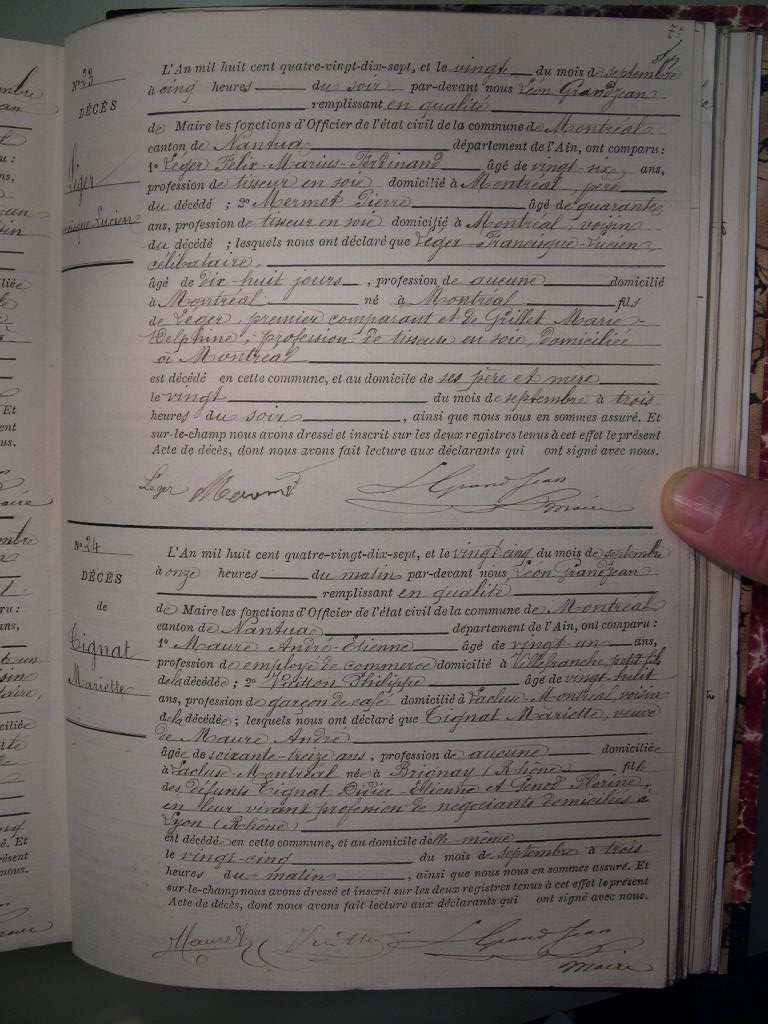 N° 23
DÉCÈS
Léger
Lucien
L'An mil huit cent quatre-vingt-dix-sept, et le vingt du mois de septembre
à cinq heures du soir par-devant nous Léon Grandjean
remplissant en qualité
de Maire les fonctions d'Officier de l'état civil de la commune de Montréal
canton de Nantua département de l'Ain, ont comparu :
1° Léger Félix-Marius-Ferdinand âgé de vingt-six, ans,
profession de tisseur en soie domicilié à Montréal, père
du décédé ; 2° Mermet Pierre âgé de quarante
ans, profession de tisseur en soie domicilié à Montréal, voisin
du décédé ; lesquels nous ont déclaré que Léger Francisque-Lucien,
célibataire,
âgé de dix-huit jours, profession de aucune domicilié
à Montréal né à Montréal fils
de Léger, premier comparant et de Grillet Marie-
Delphine, profession de tisseuse en soie, domiciliée
à Montréal
est décédé en cette commune, et au domicile de ses père et mère
le vingt du mois de septembre à trois
heures du soir, ainsi que nous nous en sommes assuré. Et
sur-le-champ nous avons dressé et inscrit sur les deux registres tenus à cet effet le présent
Acte de décès, dont nous avons fait lecture aux déclarants qui ont signé avec nous.
Léger Mermet L Grand Jean
maire
N° 24
DÉCÈS
de
Tignat
Mariette
L'An mil huit cent quatre-vingt-dix-sept, et le vingt-cinq du mois de septembre
à onze heures du matin par-devant nous Léon Grandjean
remplissant en qualité
de Maire les fonctions d'Officier de l'état civil de la commune de Montréal
canton de Nantua, département de l'Ain, ont comparu :
1° Maure André-Etienne âgé de vingt-un ans,
profession de employé de commerce domicilié à Villefranche, petit fils
de la décédée ; 2° Philippe âgé de vingt-huit
ans, profession de garçon de café domicilié à Lacluse-Montréal, voisin
de la décédée ; lesquels nous ont déclaré que Tignat Mariette, veuve
de Maure André
âgée de soixante-treize ans, profession de aucune domiciliée
à Lacluse-Montréal née à Brignay (Rhône) fille
des défunts Tignat Didier-Etienne et Florine,
en leur vivant profession de négociants domiciliés à
Lyon (Rhône)
est décédée en cette commune, et au domicile d'elle-même
le vingt-cinq du mois de septembre à trois
heures du matin, ainsi que nous nous en sommes assuré. Et
sur-le-champ nous avons dressé et inscrit sur les deux registres tenus à cet effet le présent
Acte de décès, dont nous avons fait lecture aux déclarants qui ont signé avec nous.
L Grand Jean
maire